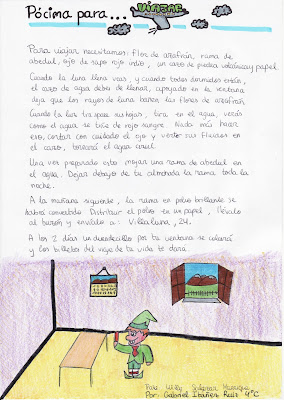 Pócima para... VIAJAR
Para viajar necesitamos: Flor de azafrán, rama de
abedul, ojo de sapo rojo indio, un cazo de piedra volcánica y papel
Cuando la luna llena veas, y cuando todos dormidos estén,
el cazo de agua debes de llenar, apoyado en la ventana
deja que los rayos de luna bañen las flores de azafrán
Cuando la luz traspase sus hojas, tira en el agua, verás
como el agua se tiñe de rojo sangre. Nada más hacer
eso, cortar con cuidado el ojo y verter sus fluidos en
el cazo, tornará el agua azul.
Una vez preparado esto mojas una rama de abedul en
el agua. Dejar debajo de tu almohada la rama toda la
noche.
A la mañana siguiente, la rama en polvo brillante se
habrá convertido. Distribuir el polvo en un papel, llévalo
al buzón y envíalo a: Villaluna, 24.
A los 2 días un duendecillo por tu ventana se colará
y los billetes del viaje de tu vida te dará
Para Willy Salazar Manrique
Por: Gabriel Ibáñez Ruiz 4ºC